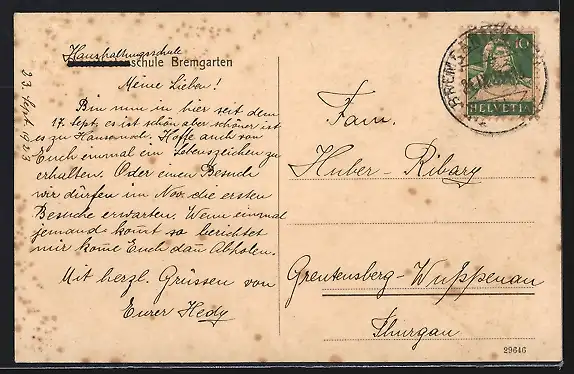 Haushaltungsschule
schule Bremgarten
23. Sept. 1923
Meine Lieben!
Bin nun in hier seit dem
17. Sept. es ist schön aber schöner ist
es zu Hause. Hoffe auch von
Euch einmal ein Lebenszeichen zu
erhalten. Oder einen Besuch
wir dürfen im Nov. die ersten
Besuche erwarten. Wenn einmal
jemand kom̄t so berichtet
mir kom̄e Euch dan̄ Abholen.
Mit herzl. Grüssen von
Eurer Hedy
10
HELVETIA
Fam.
Huber-Ribary
Greutensberg-Wuppenau
Thurgau
29646